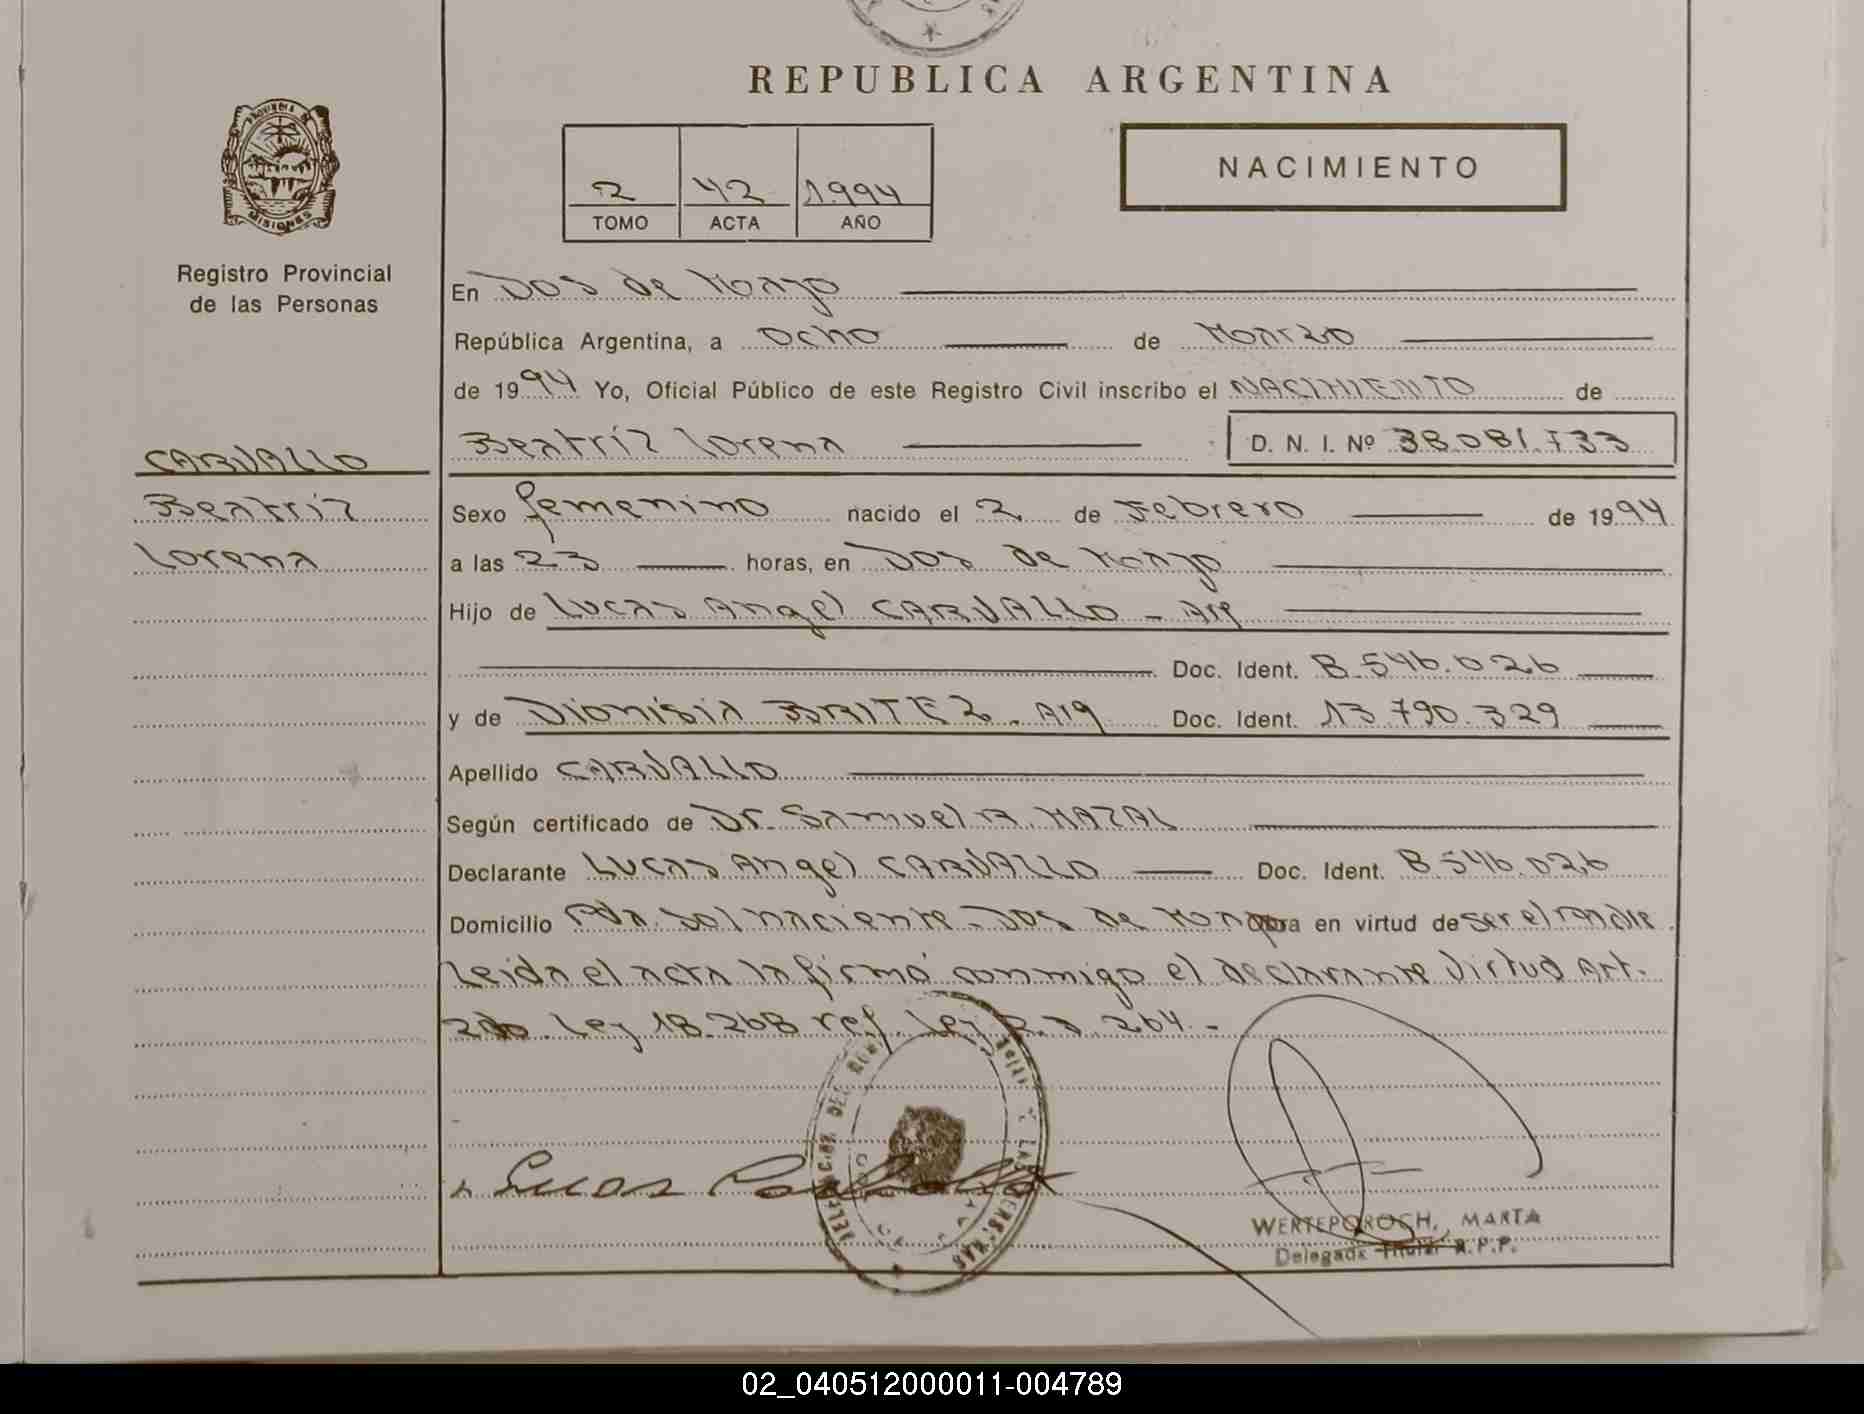 REPUBLICA ARGENTINA
NACIMIENTO
2 42 1.994
TOMO ACTA AÑO
PROVINCIA DE
MISIONES
Registro Provincial
de las Personas
En Dos de Mayo
República Argentina, a Ocho de Marzo
de 1994 Yo, Oficial Público de este Registro Civil inscribo el NACIMIENTO de
Beatríz Lorena D. N. I. Nº 38.081.733
CARVALLO
Beatríz
Lorena
Sexo femenino nacido el 2 de Febrero de 1994
a las 23 horas, en Dos de Mayo
Hijo de Lucas Angel CARVALLO - Arg
Doc. Ident. 8.546.026
y de Dionisia BRITEZ. Arg Doc. Ident. 13.790.329
Apellido CARVALLO
Según certificado de Dr. Samuel R. MAZAL
Declarante Lucas Angel CARVALLO Doc. Ident. 8.546.026
Domicilio Pda. Sol naciente. Dos de Mayo obra en virtud de ser el padre
Leida el acta la firmó conmigo el declarante Virtud Art.
Ley 18.268 ref. Ley 23.264.-
Lucas Carballo
WERTEPOROCH, MARTA
Delegada Titular R.P.P.
02_040512000011-004789